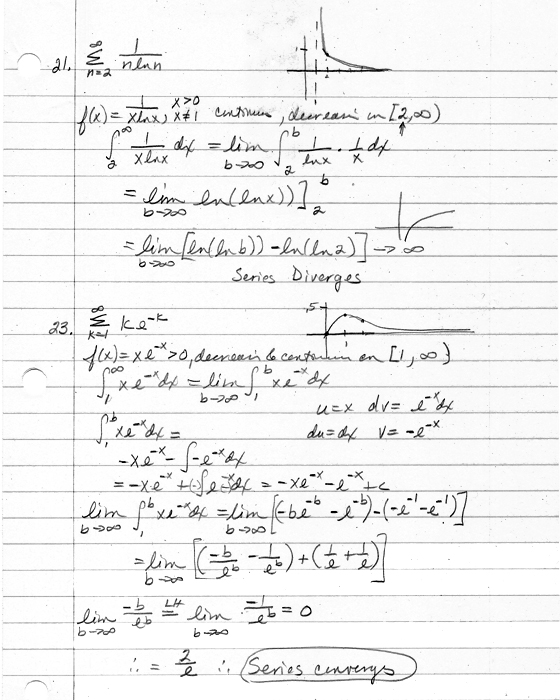 21. ∞ Σ n=2 1/(n ln n)
f(x) = 1/(x ln x), x>0 x≠1 continuous, decreasin on [2,∞)
∫₂^∞ 1/(x ln x) dx = lim b→∞ ∫₂^b 1/(ln x) · 1/x dx
= lim b→∞ ln(ln x))]₂^b
= lim b→∞ [ln(ln b)) - ln(ln 2)] → ∞
Series Diverges
23. ∞ Σ k=1 k e^-k
.5
f(x) = x e^-x > 0, decreasin & continuin on [1, ∞)
∫₁^∞ x e^-x dx = lim b→∞ ∫₁^b x e^-x dx
u = x dv = e^-x dx
∫₁^b x e^-x dx = du = dx v = -e^-x
-x e^-x - ∫ -e^-x dx
= -x e^-x + ∫ e^-x dx = -x e^-x - e^-x + c
lim b→∞ ∫₁^b x e^-x dx = lim b→∞ [(-b e^-b - e^-b) - (-e^-1 - e^-1)]
= lim b→∞ [(-b/e^b - 1/e^b) + (1/e + 1/e)]
lim b→∞ -b/e^b LH= lim b→∞ -1/e^b = 0
∴ = 2/e ∴ Series converges